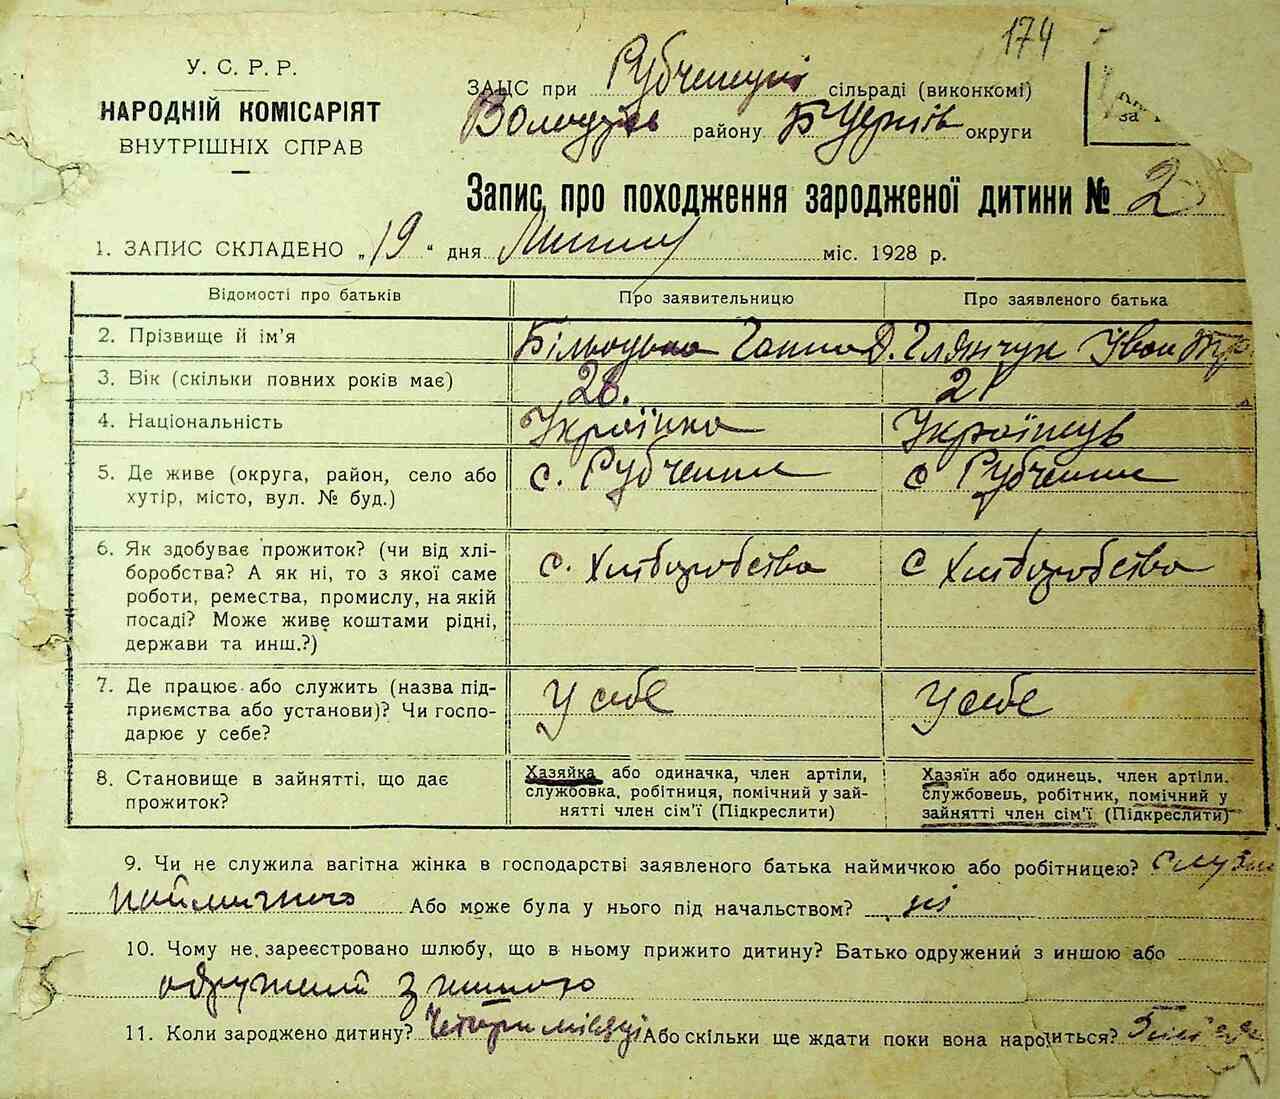 174
У. С. Р. Р.
НАРОДНІЙ КОМІСАРІЯТ
ВНУТРІШНІХ СПРАВ
ЗАЦС при сільраді (виконкомі)
району Б Церків округи
Запис про походження зародженої дитини № 2
1. ЗАПИС СКЛАДЕНО „19“ дня Липня міс. 1928 р.
Відомості про батьків Про заявительницю Про заявленого батька
2. Прізвище й ім'я Ганна Д. Глянчук Іван
3. Вік (скільки повних років має) 28. 21
4. Національність Українка Українець
5. Де живе (округа, район, село або с. Рубченки с Рубченки
хутір, місто, вул. № буд.)
6. Як здобуває прожиток? (чи від хлі- с. Хліборобства с Хліборобства
боробства? А як ні, то з якої саме
роботи, ремества, промислу, на якій
посаді? Може живе коштами рідні,
держави та инш.?)
7. Де працює або служить (назва під- У себе У себе
приємства або установи)? Чи госпо-
дарює у себе?
8. Становище в зайнятті, що дає
прожиток?
Хазяйка або одиначка, член артіли,
службовка, робітниця, помічний у зай-
нятті член сім'ї (Підкреслити)
Хазяїн або одинець, член артіли,
службовець, робітник, помічний у
зайнятті член сім'ї (Підкреслити)
9. Чи не служила вагітна жінка в господарстві заявленого батька наймичкою або робітницею?
Або може була у нього під начальством? ні
10. Чому не зареєстровано шлюбу, що в ньому прижито дитину? Батько одружений з иншою або
одружений з иншою
11. Коли зароджено дитину? Чотири місяці Або скільки ще ждати поки вона народиться?